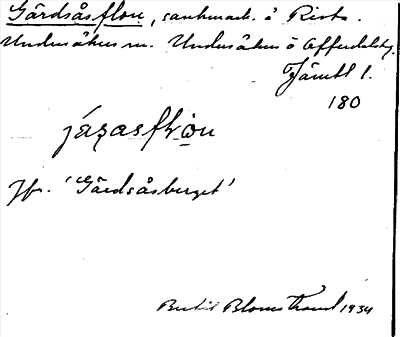 Gårdsåsflon, sankmark. å Rista.
Undersåkers sn. Undersåkers o Offerdals tg.
Jämtl l.
180
Jfr. 'Gårdsåsberget'
Bertil Blomstrand 1934